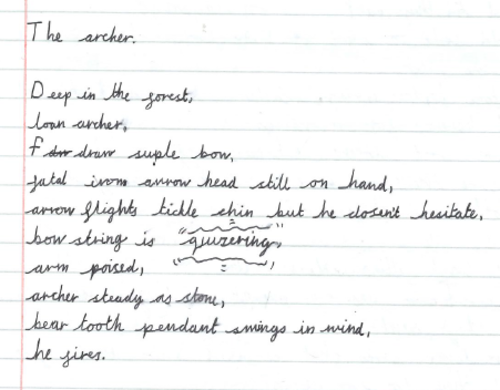 The archer.
Deep in the forest,
loan archer,
f draw suple bow,
fatal iron arrow head still on hand,
arrow flights tickle chin but he dosen't hesitate,
bow string is "quizering,
arm poised,
archer steady as stone,
bear tooth pendant swings in wind,
he fires.